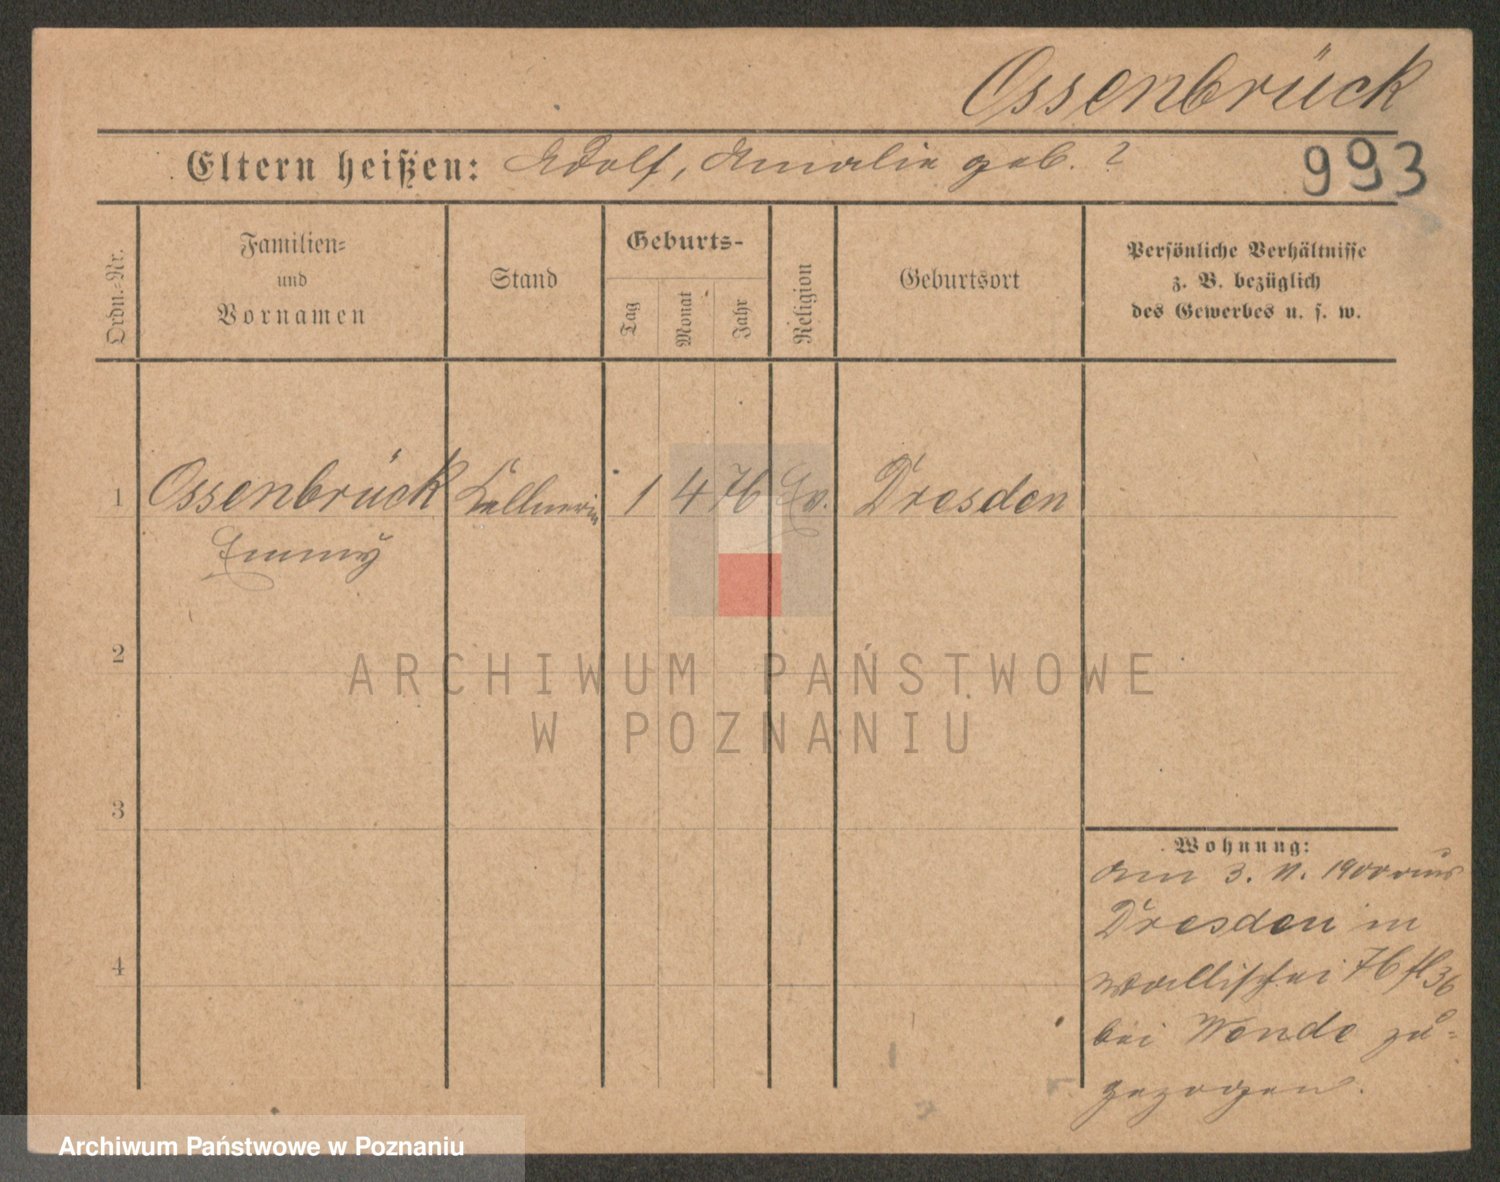 Ossenbrück
Eltern heißen: Adolf, Amalie geb. ?
993
Ordn.-Nr.
Familien-
und
Vornamen
Stand
Geburts-
Tag
Monat
Jahr
Religion
Geburtsort
Persönliche Verhältnisse
z. B. bezüglich
des Gewerbes u. s. w.
1 Ossenbrück Kellnerin 1 4 76 Ev. Dresden
Emmy
2
ARCHIWUM PAŃSTWOWE
W POZNANIU
3
4
Wohnung:
Am 3. 1900 aus
Dresden in
Wallischei 76
bei Wende zu-
gezogen.
Archiwum Państwowe w Poznaniu